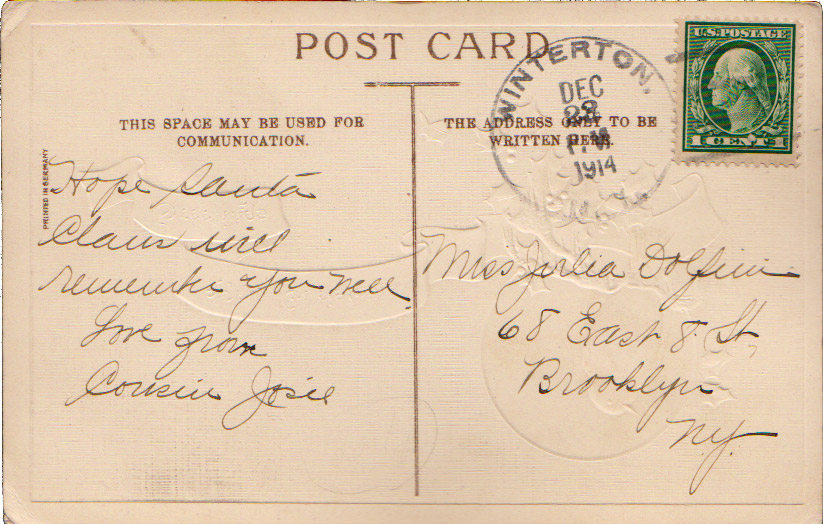 POST CARD
THIS SPACE MAY BE USED FOR
COMMUNICATION.
THE ADDRESS ONLY TO BE
WRITTEN HERE.
PRINTED IN GERMANY
WINTERTON,
DEC
P.M.
1914
N.Y.
U.S. POSTAGE
1 CENT 1
Hope Santa
Claus will
remember you well
Love from
Cousin Josie
Miss Julia
68 East 8. St,
Brooklyn
NY.